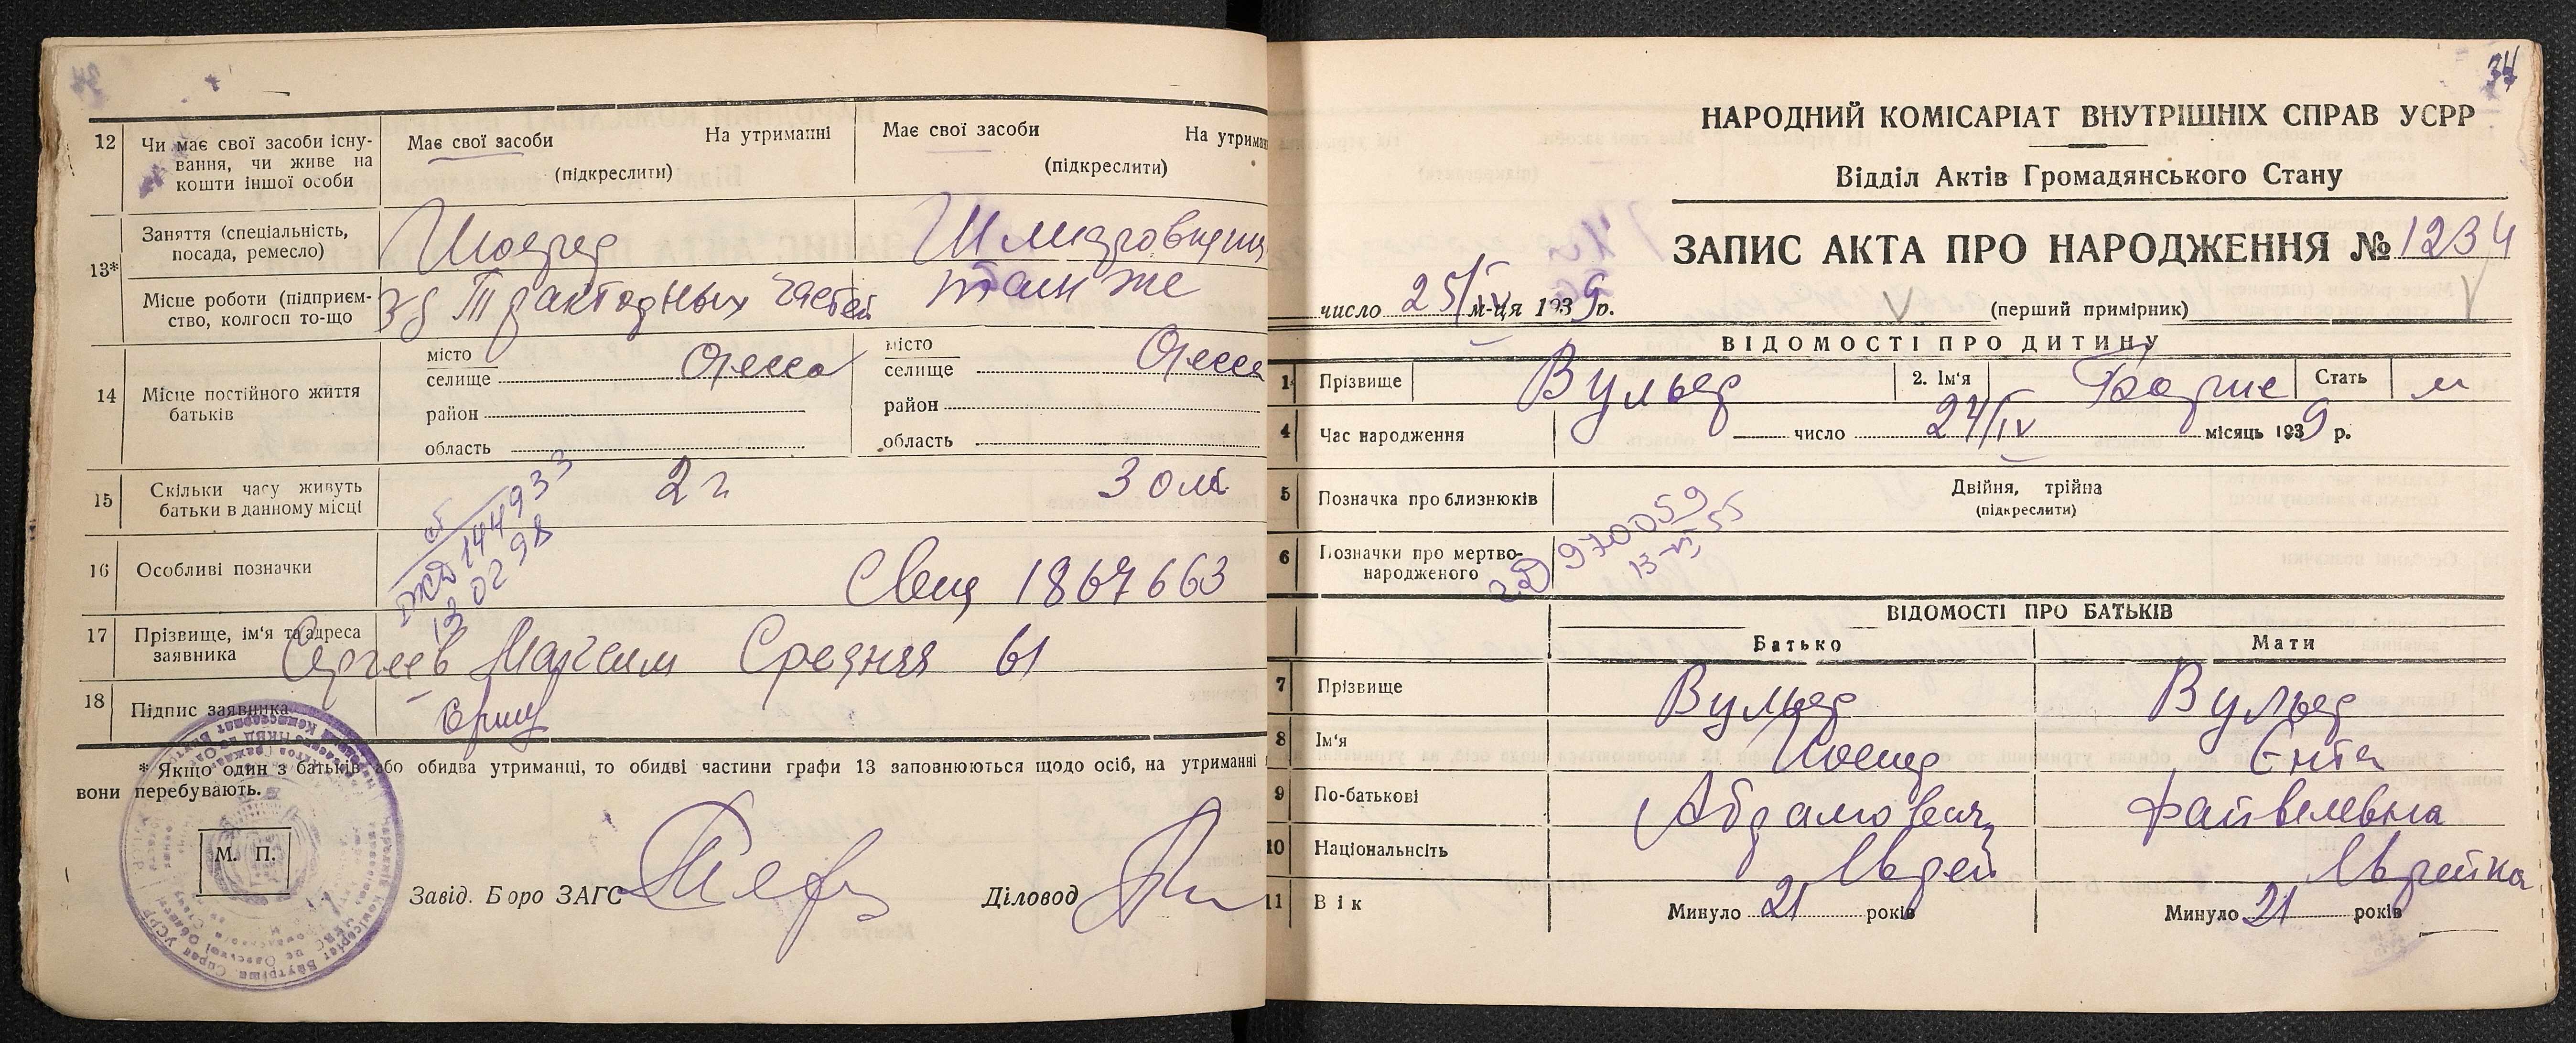 12
Чи має свої засоби існу-
вання, чи живе на
кошти іншої особи
Має свої засоби На утриманні
(підкреслити)
Має свої засоби На утриман
(підкреслити)
13*
Заняття (спеціальність,
посада, ремесло)
Місце роботи (підприєм-
ство, колгосп то-що
Тракторных частей
так же
14
Місце постійного життя
батьків
місто
селище Одесса
район
область
місто
селище Одесса
район
область
15
Скільки часу живуть
батьки в данному місці
2 г
16
Особливі позначки
13 02 98
1867663
17
Прізвище, ім'я та адреса
заявника
Сергеев Максим Средняя 61
18
Підпис заявника
* Якщо один з батьків або обидва утриманці, то обидві частини графи 13 заповнюються щодо осіб, на утриманні
вони перебувають.
М. П.
Завід. Бюро ЗАГС
Діловод
34
НАРОДНИЙ КОМІСАРІАТ ВНУТРІШНІХ СПРАВ УСРР
Відділ Актів Громадянського Стану
ЗАПИС АКТА ПРО НАРОДЖЕННЯ № 1234
число 25/IV м-ця 1939 р.
(перший примірник)
ВІДОМОСТІ ПРО ДИТИНУ
1 Прізвище Вульер 2. Ім'я Борис Стать м
4 Час народження число 24/IV місяць 1939 р.
5 Позначка про близнюків Двійня, трійня
(підкреслити)
6 Позначки про мертво-
народженого
970059
13-VI 55
ВІДОМОСТІ ПРО БАТЬКІВ
Батько Мати
7 Прізвище Вульер Вульер
8 Ім'я Иосиф Ента
9 По-батькові Абрамович Файвелевна
10 Національнсіть Еврей Еврейка
11 Вік Минуло 21 років Минуло 21 років